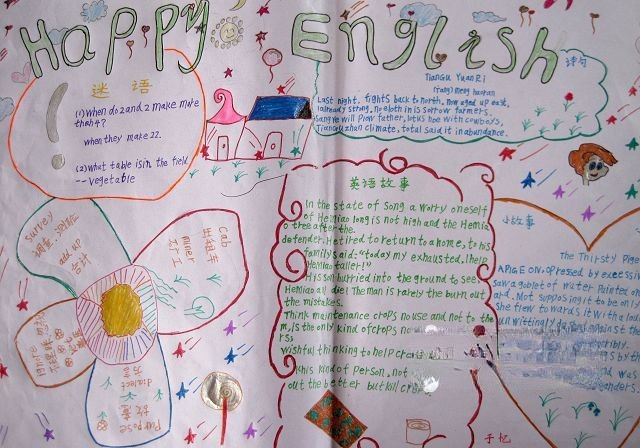 Happy English
谜 语
(1) When do 2 and 2 make more
than 4?
when they make 22.
(2) what table is in the field
-- vegetable
诗句
TianGu YuanRi
(Tang) Meng haoran
Last night, fights back to north, now aged up east,
I already strong, no eloth in is sorrow farmers.
Sang ye will pray father, lotus hoe with cowboys,
Tianou zhan climate, total said it in abundance.
英语故事
In the state of Song a worry oneself
of Hemiao long is not high and the Hemia
o tree after the.
defender. He tired to return to a home, to his
family said: "today my exhausted, I help
Hemiao taller!"
His son burried into the ground to see,
Hemiao all die! The man is rarely the burn out
the mistakes.
Think maintenance crops no use and not to the
is the only kind of crops no
rs;
wishful thinking to help
this kind of person, not
out the better but kill
小故事
The Thirsty Pige
A PIGEON, oppressed by excessi
saw a goblet of water painted on
ard. Not supposing it to be only
she flew towards it with a loud
unwittingly
st the
rribly.
gs by th
nd was
anders.
survey
调查,测验
add up
合计
cab
出租车
miner
矿工
ignore
dialect
方言
Purpose
故意
于忆